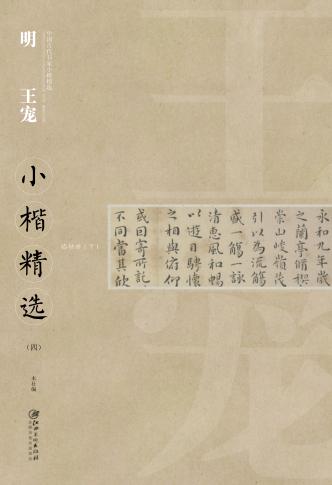 中国古代书家小楷精选
明
王宠
小楷精选
(四)
本社编
江西美术出版社
王
宠
永和九年歳
之蘭亭脩禊
崇山峻嶺茂
引以為流觴
咸一觴一詠
清惠風和暢
以遊目騁懷
之相與俯仰
或因寄所託
不同當其欣